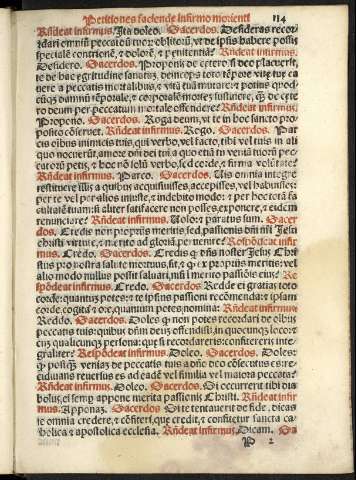 Petitiones faciende infirmo morienti 114
Rñdeat infirmus. Ita doleo. Sacerdos. Desideras recor/
dari omniũ peccatoũ tuoꝝ oblitoꝝ, vt de ipsis habere possis
specialẽ contritionẽ, ⁊ dolorẽ, ⁊ penitentiã? Rñdeat infirmus.
Desidero. Sacerdos. Proponis de cetero, si deo placuerit,
te de hac egritudine sanatũ, deinceps toto tẽpore vite tue ca
uere a peccatis mortalibus, ⁊ vitã tuã mutare: ⁊ potius quod
cunqꝫ damnũ tẽporale, ⁊ corporale mortẽ sustinere, ꝙ̃ de cete
ro deum per peccatum mortale offendere? Rñdeat infirmus.
Propono. Sacerdos. Roga deum, vt te in hoc sancto pro/
posito cõseruet. Rñdeat infirmus. Rogo. Sacerdos. Par
cis oĩbus inimicis tuis, qui verbo, vel facto, tibi vel tuis in ali
quo nocuerũt, amore dñi dei tui a quo etiã tu veniã tuoꝝ pec
catorũ petis, ⁊ hoc nõ solũ verbo, sed corde, ⁊ firma volũtate?
Rñdeat infirmus. Parco. Sacerdos. Vis omnia integre
restituere illis a quibus acquisiuisses, accepisses, vel habuisses:
per te vel per alios iniuste, ⁊ indebito modo: ⁊ per hoc totã fa
cultatẽ tuam: si aliter satisfacere non posses, exponere, ⁊ eidẽ
renunciare? Rñdeat infirmus. Uolo: ⁊ paratus sum. Sacer
dos. Credis non proprijs meritis, sed, passionis dñi nr̃i Jesu
christi virtute, ⁊ merito ad gloriã, peruenire? Respõdeat infir
mus. Credo. Sacerdos. Credis ꝙ dñs noster Jesus Chri
stus pro nostra salute mortuus, sit, ⁊ ꝙ ex proprijs meritis: vel
alio modo nullus possit saluari, nisi ĩ merito passiõis eius? Re
spõdeat infirmus. Credo. Sacerdos Redde ei gratias toto
corde: quantũ potes: ⁊ te ipsius passioni recõmenda: ⁊ ipsam
corde, cogita ⁊ ore, quantum potes, nomina: Rñdeat infirmus:
Reddo. Sacerdos. Doles ꝙ non potes recordari de oĩbus
peccatis tuis: quibus dñm deuz offendisti, in quocunqꝫ loco: ⁊
cuz qualicunqꝫ persona: que si recordareris: confitereris inte/
graliter? Respõdeat infirmus. Doleo. Sacerdos. Doles:
ꝙ postqꝫ̃ veniaz de peccatis tuis a dño deo cõsecutus es: re/
cidiuans reuersus es ad eadẽ vel similia vel maiora peccata?
Rñdeat infirmus. Doleo. Sacerdos. Si occurrerit tibi dia
bolus, ei semꝑ appone merita passionis Christi. Rñdeat infir
mus. Apponaz. Sacerdos Cũ te tentauerit de fide, dicas
te omnia credere, ⁊ cõfiteri, que credit, ⁊ confitetur sancta ca
tholica ⁊ apostolica ecclesia. Rñdeat infirmus. Dicam. Sa
P 2